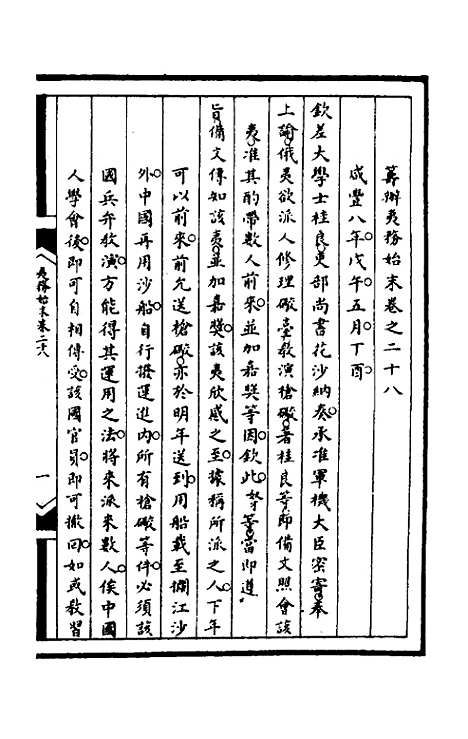 籌辦夷務始末卷之二十八
咸豐八年戊午五月丁酉
欽差大學士桂良吏部尚書花沙納奏承准軍機大臣密寄奉
上諭俄夷欲派人修理礮臺敎演槍礮著桂良等即備文照會該
夷准其酌帶數人前來並加嘉獎等因欽此奴才等當即遵
旨備文傳知該夷並加嘉獎該夷欣感之至據稱所派之人下年
可以前來前允送槍礮亦於明年送到用船載至攔江沙
外中國再用沙船自行撥運進內所有槍礮等件必須該
國兵弁敎演方能得其運用之法將來派來數人俟中國
人學會後即可自相傳受該國官員即可撤回如或敎習
夷務始末卷二十八
一